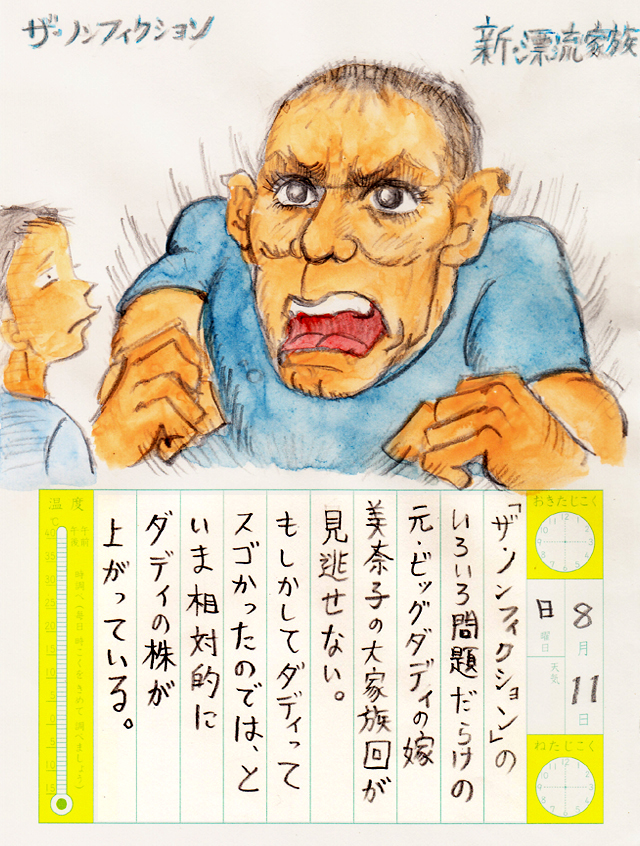 ザ・ノンフィクション
新・漂流家族
おきたじこく
8月
11日
日曜日
天気
ねたじこく
「ザ・ノンフィクション」の
いろいろ問題だらけの
元・ビッグダディの嫁
美奈子の大家族回が
見逃せない。
もしかしてダディって
スゴかったのでは、と
いま相対的に
ダディの株が
上がっている。
温度
午前
午後
時調べ(毎日一時こくをきめて調べましょう)
℃
40
35
30
25
20
15
10
5
0
5
10
15